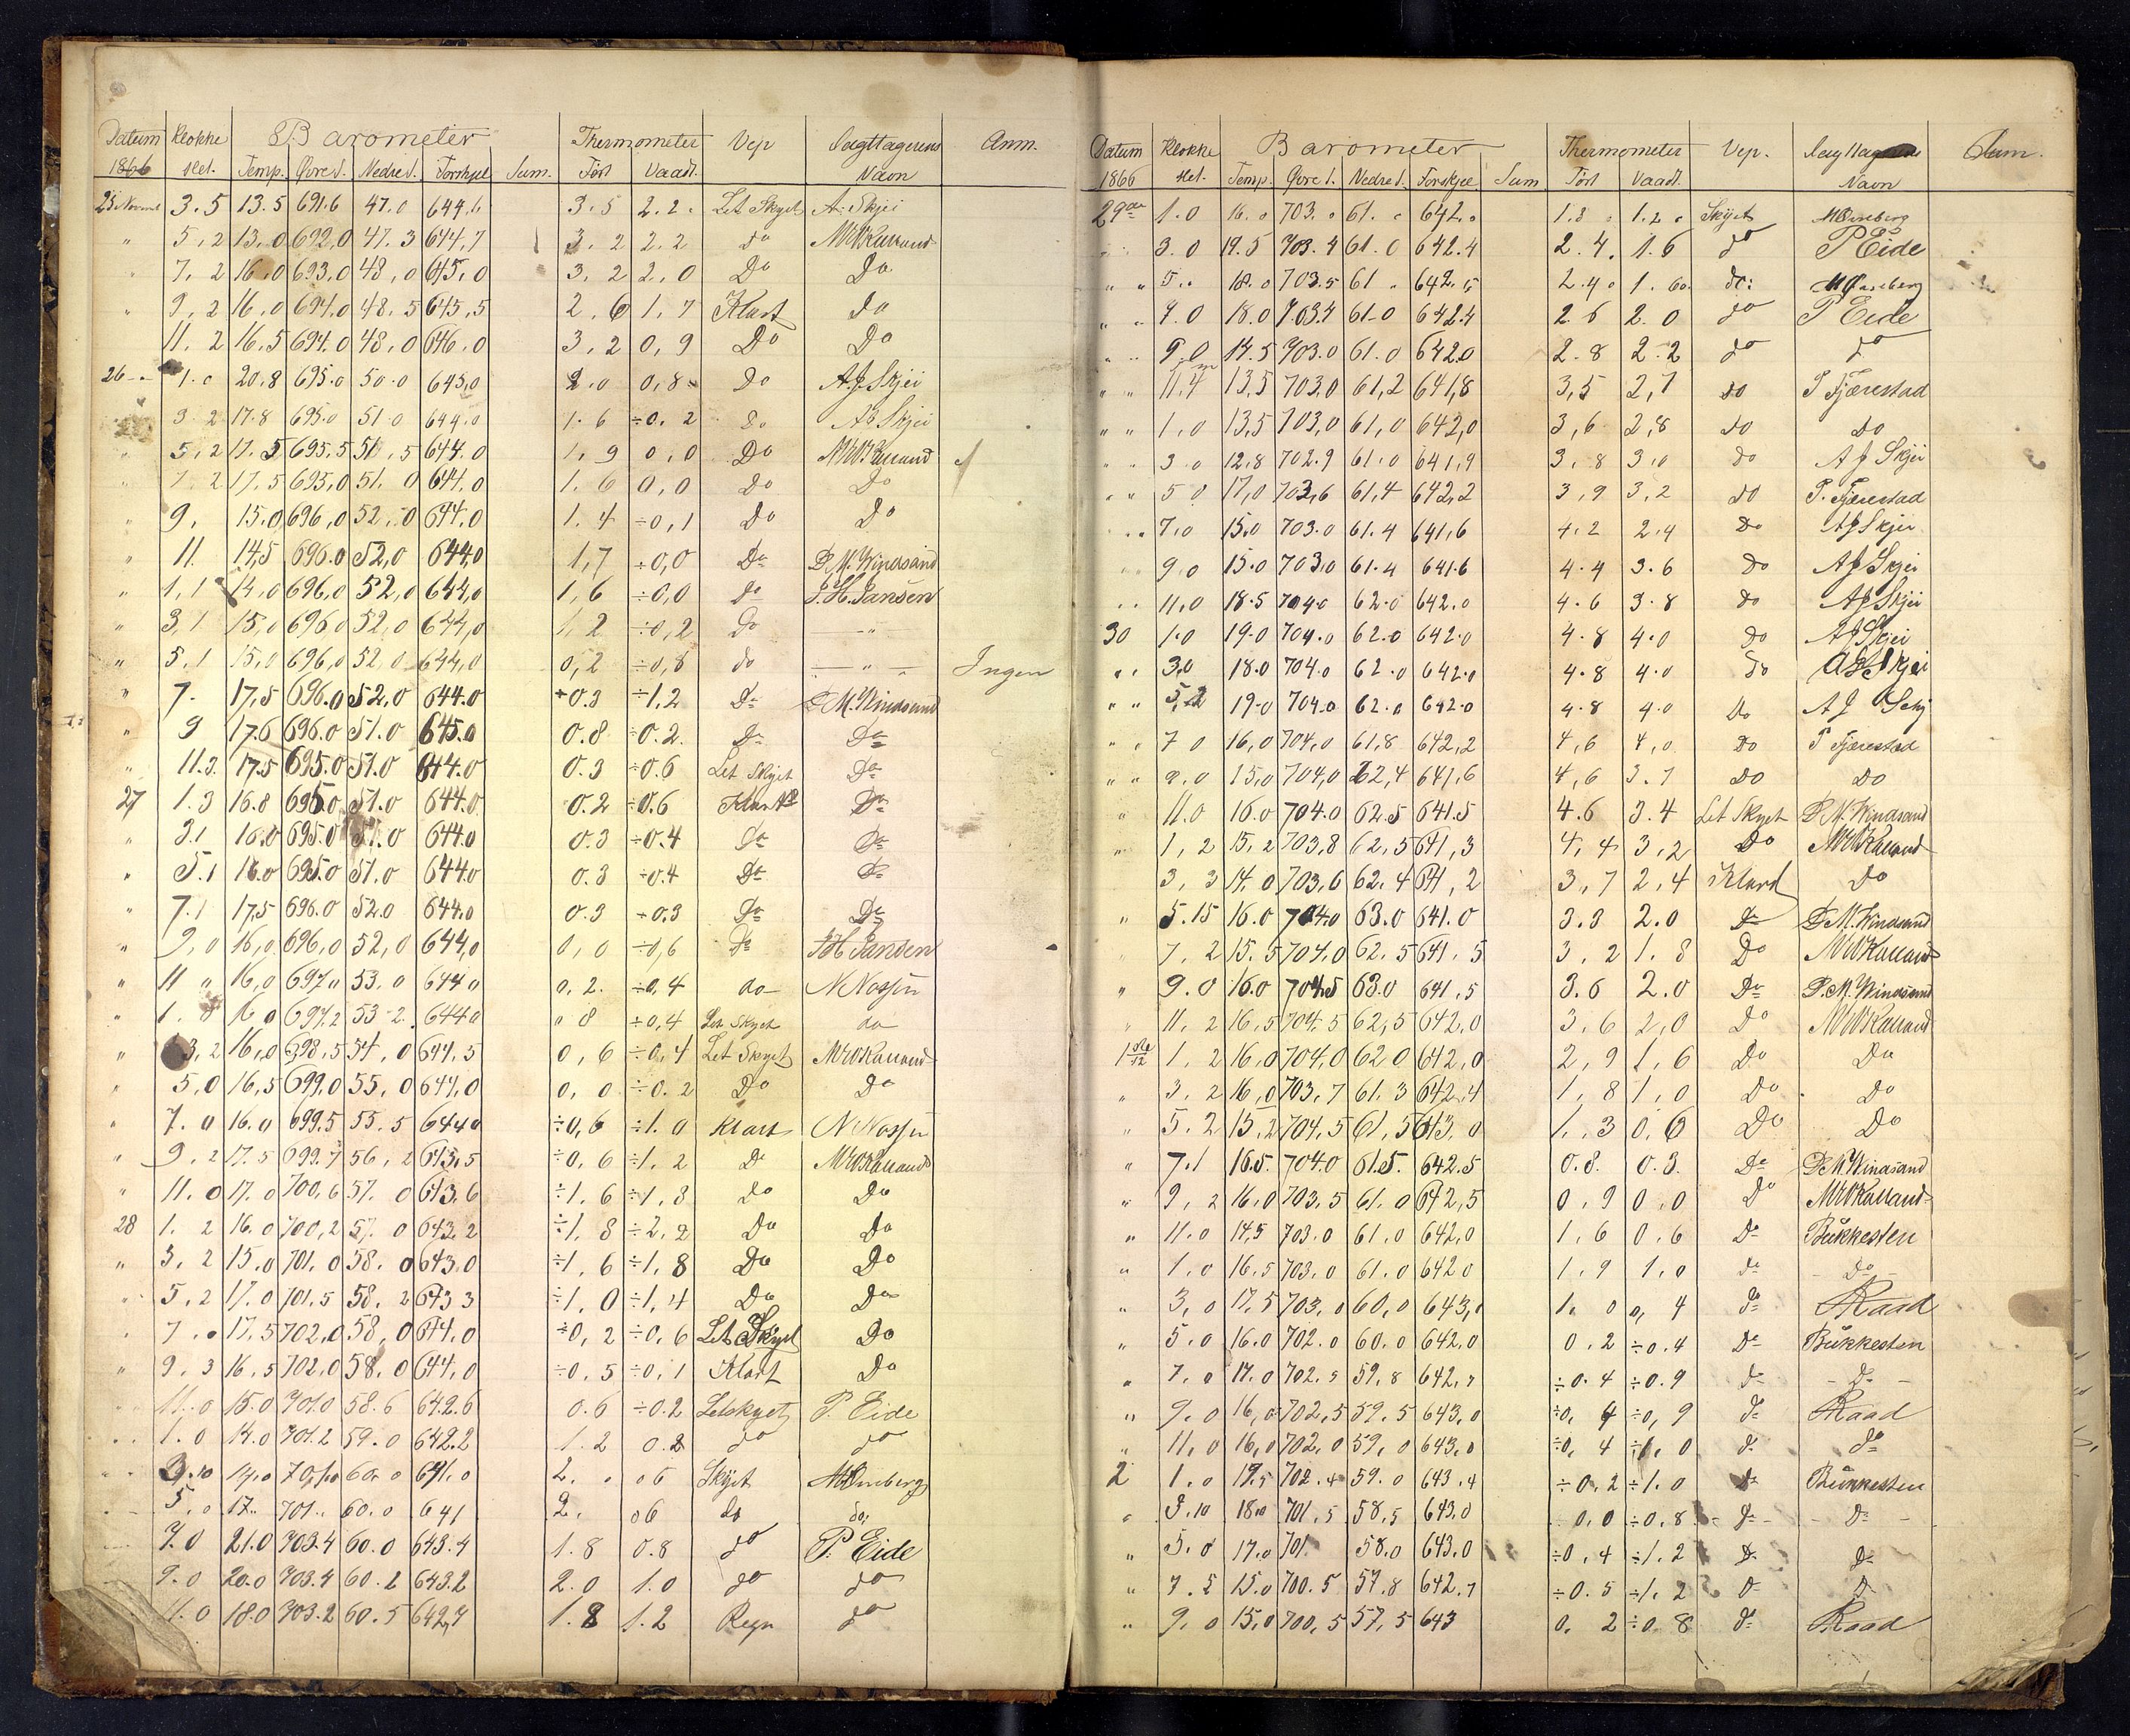 Datum Klokke Barometer Thermometer Vejr Iagttagerens Anm.
1866 slet. Temp. Øvre d. Nedre d. Forskjel Sum. Tört Vaadt. Navn
25 3.5 13.5 691.6 47.0 644.6 3.5 2.2 Let Skyet A. Skjei
" 5,2 13,0 692,0 47.3 644,7 3.2 2.2 do
" 7,2 16,0 693.0 48,0 645,0 3,2 2,0 Do Do
" 9,2 16,0 694,0 48,5 645,5 2,6 1,7 Klart do
11.2 16.5 694.0 48,0 646.0 3,2 0,9 Do Do
26 1.0 20.8 695.0 50.0 645,0 2.0 0,8 Do AJ Skjei
3 2 17.8 695.0 51.0 644.0 1.6 ÷0.2 Do AJ Skjei
" 5,2 17.5 695.5 51,5 644.0 1,9 0,0 Do
" 7.2 17.5 695,0 51.0 644,0 1.6 0,0 Do Do
" 9, 15.0 696,0 52,0 644.0 1.4 ÷0,1 Do Do
" 11. 14,5 696.0 52,0 644,0 1,7 ÷0,0 Do P.M. Windsand
" 1,1 14,0 696,0 52,0 644,0 1,6 ÷0,0 do J.H. Jansen
" 3,1 15,0 696,0 52,0 644,0 1,2 ÷0,2 Do — " —
" 5,1 15,0 696,0 52,0 644,0 0,2 ÷0,8 do — " — Ingen
" 7. 17,5 696.0 52,0 644.0 +0.3 ÷1,2 Do P.M. Windsand
" 9 17.6 696.0 51.0 645.0 0.8 ÷0.2 Do Do
" 11.3. 17.5 695.0 51.0 644.0 0.3 ÷0.6 Let Skyet Do
27 1.3 16.8 695.0 51.0 644.0 0.2 ÷0.6 Klart Do
" 3.1 16.0 695.0 51.0 644.0 0.3 ÷0.4 Do Do
" 5.1 16.0 695.0 51.0 644.0 0.3 ÷0.4 Do Do
" 7.1 17,5 696.0 52.0 644.0 0.3 ÷0.3 Do Do
" 9,0 16,0 696,0 52,0 644,0 0,0 ÷0,6 Do J.H. Jansen
" 11 " 16,0 697,0 53.0 644,0 0.2. ÷0,4 do
" 1.0 16,0 697,2 53.2. 644,0 0 8 ÷0,4 Let Skyet do
" 3,2 16,0 698,5 54,0 644,5 0,6 ÷0,4 Let Skyet
" 5,0 16,5 699,0 55,0 644,0 0,0 ÷0.2 Do Do
" 7.0 16.0 699.5 55.5 644,0 ÷0,6 ÷1.0 Klart
" 9,2 17.5 699.7 56,2 643,5 ÷0,6 ÷1,2 Do
" 11.0 17.0 700,6 57.0 643.6 ÷1.6 ÷1,8 Do Do
28 1.2 16.0 700,2 57.0 643.2 ÷1,8 ÷2,2 Do Do
" 3,2 15,0 701,0 58.0 643.0 ÷1,6 ÷1,8 Do Do
" 5,2 17.0 701,5 58.2 643 3 ÷1,0 ÷1,4 Do Do
" 7.0 17.5 702,0 58,0 644.0 ÷0,2 ÷0,6 Let Skyet Do
" 9.3 16.5 702.0 58.0 644.0 ÷0,5 ÷0,1 Klart Do
11.0 15.0 701.0 58.6 642.6 0.6 ÷0.2 Letskyet P. Eide
" 1.0 14.0 701.2 59.0 642.2 1.2 0.2 do do
3.10 60.0 641.0 2. 0 6 Skyet
5.0 17. 701. 60.0 641 2. 06 do do
7.0 21.0 703.4 60.0 643.4 1.8 0.8 do P. Eide
9.0 20.0 703.4 60.2 643.2 2.0 1.0 do do
11.0 18.0 703.2 60.5 642,7 1.8 1.2 Regn do
Datum Klokke Barometer Thermometer Vejr. Anm.
1866 slet. Temp. Øvre d. Nedre d. Forskjel Sum Tört Vaadt. Navn
29 1.0 16.0 703.0 61.0 642.0 1.8 1.2 Skyet
" 3.0 19.5 703.4 61.0 642.4 2.4 1.6 do P Eide
" " 5.. 18.0 703.5 61. 642.5 2.4 1.60 do:
" " 7.0 18.0 703.4 61.0 642.4 2.6 2.0 do P Eide
" " 9.0 14.5 703.0 61.0 642.0 2.8 2.2 do do
" " 11.4 13,5 703,0 61,2 641,8 3,5 2,7 do T Tjærestad
" " 1,0 13,5 703,0 61,0 642,0 3,6 2,8 do do
" " 3.0 12.8 702.9 61.0 641.9 3.8 3.0 do A J Skjei
" " 5 0 17,0 703,6 61,4 642,2 3,9 3,2 do T. Tjærestad
" " 7.0 15.0 703.0 61.4 641.6 4.2 2.4 Do AJ Skjei
" " 9.0 15.0 703.0 61.4 641.6 4.4 3.6 Do AJ Skjei
" " 11.0 18.5 704.0 62.0 642.0 4.6 3.8 do AJ Skjei
30 1.0 19.0 704.0 62.0 642.0 4.8 4.0 Do AJ Skjei
" " 3.0 18.0 704.0 62.0 642.0 4.8 4.0 Do AJ Skjei
" " 5.2 19.0 704.0 62.0 642.0 4.8 4.0 Do A J Skj
" " 7 0 16,0 704,0 61,8 642,2 4,6 4,0 Do T Tjærestad
" " 9.0 15,0 704,0 62,4 641,6 4,6 3.7 Do Do
" 11.0 16.0 704.0 62.5 641.5 4.6 3.4 Let Skyet P.M. Windsand
" 1,2 15,2 703,8 62,5 641,3 4,4 3,2 Do
3,3 14,0 703,6 62.4 641,2 3,7 2,4 Klart Do
" 5.15 16.0 704.0 63.0 641.0 3.3 2.0 Do P.M. Windsand
" 7,2 15.5 704,0 62.5 641,5 3,2 1.8 Do
" 9.0 16.0 704.5 63.0 641.5 3.6 2.0 Do P.M. Windsand
" 11,2 16,5 704,5 62,5 642,0 3,6 2,0 Do
1ste/12 1,2 16,0 704,0 62 0 642,0 2,9 1,6 Do Do
" 3,2 16,0 703,7 61,3 642,4 1,8 1,0 Do Do
" 5.2 15,2 704,5 61,5 643,0 1,3 0,6 Do Do
" 7.1 16.5. 704.0 61.5. 642.5 0.8. 0.3. Do P.M. Windsand
" 9,2 16,0 703,5 61,0 642,5 0,9 0,0 Do
" 11.0 14,5 703.0 61,0 642,0 1,6 0,6 Do Bükkesten
" 1,0 16,5 703,0 61,0 642 0 1,9 1,0 do - Do -
" 3,0 17,5 703,0 60,0 643,0 1,0 0,4 do Raad
" 5.0 16.0 702.0 60.0 642,0 0.2 ÷0.4 Do Bükkesten
" 7.0 17.0 702.5 59,8 642,7 ÷0.4 ÷0.9 do - Do -
" 9.0 16,0 702,5 59.5 643,0 ÷0,4 ÷0,9 do Raad
" 11,0 16,0 702,0 59,0 643,0 ÷0,4 ÷1,0 do do
2 1.0 17.5 702.4 59.0 643.4 ÷0,2 ÷1.0 do Bükkesten
" 3.10 18.0 701.5 58,5 643.0 0,0 ÷0,8 do - Do -
" 5.0 17.0 701. 58.0 643.0 ÷0,4 ÷1.2 do do
" 7.5 15.0 700.5 57.8 642.7 ÷0.5 ÷1.2 do do
" 9,0 15,0 700,5 57,5 643 0,2 ÷0 8 do Raad